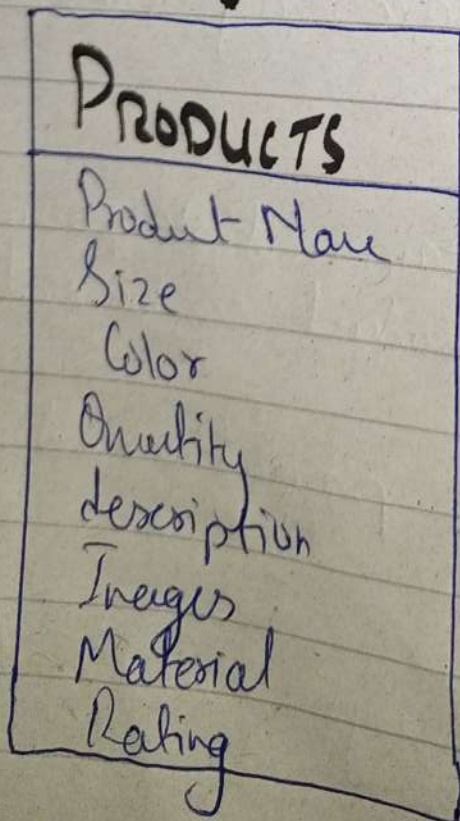 PRODUCTS
Product Name
Size
Color
Quantity
description
Images
Material
Rating